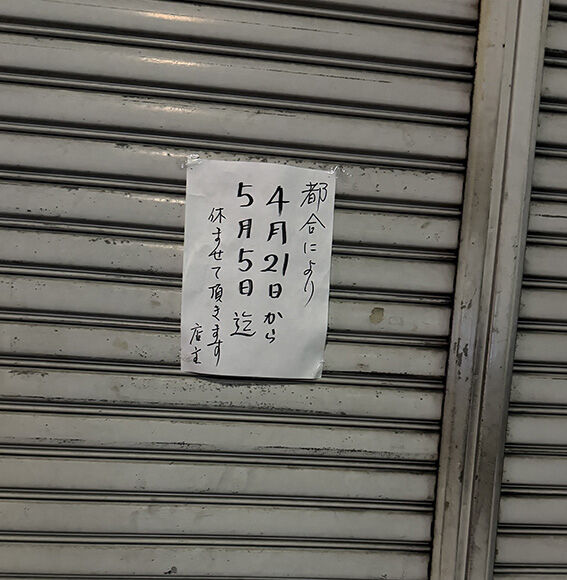 都合により
4月21日から
5月5日迄
休ませて頂きます
店主